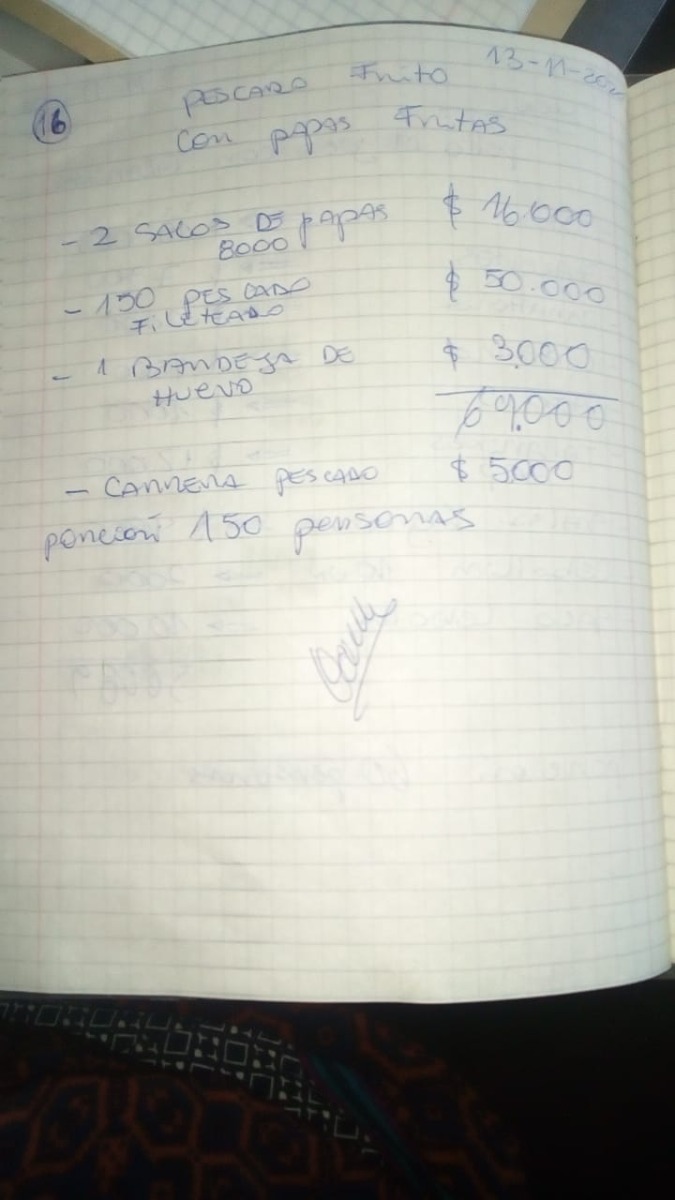 16
PESCADO Frito 13-11-202
con papas Fritas
- 2 SACOS DE PAPAS $ 16.000
8000
- 150 PESCADO $ 50.000
FiLETEADO
- 1 BANDEJA DE $ 3.000
HUEVO
69.000
- CARRERA PESCADO $ 5000
porción 150 personas